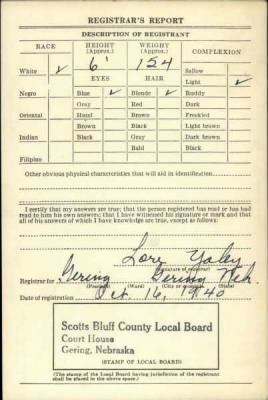 REGISTRAR'S REPORT
DESCRIPTION OF REGISTRANT
RACE HEIGHT (Approx.) WEIGHT (Approx.) COMPLEXION
6' 154 Sallow
White ✓ EYES HAIR Light ✓
Negro Blue ✓ Blonde ✓ Ruddy
Gray Red Dark
Oriental Hazel Brown Freckled
Brown Black Light brown
Indian Black Gray Dark brown
Bald Black
Filipino
Other obvious physical characteristics that will aid in identification
I certify that my answers are true; that the person registered has read or has had
read to him his own answers; that I have witnessed his signature or mark and that
all of his answers of which I have knowledge are true, except as follows:
Yaley
(Signature of registrar)
Registrar for Gering Gering Neb.
(Precinct) (Ward) (City or county) (State)
Date of registration Oct. 16, 1940
Scotts Bluff County Local Board
Court House
Gering, Nebraska
(STAMP OF LOCAL BOARD)
(The stamp of the Local Board having jurisdiction of the registrant
shall be placed in the above space.)